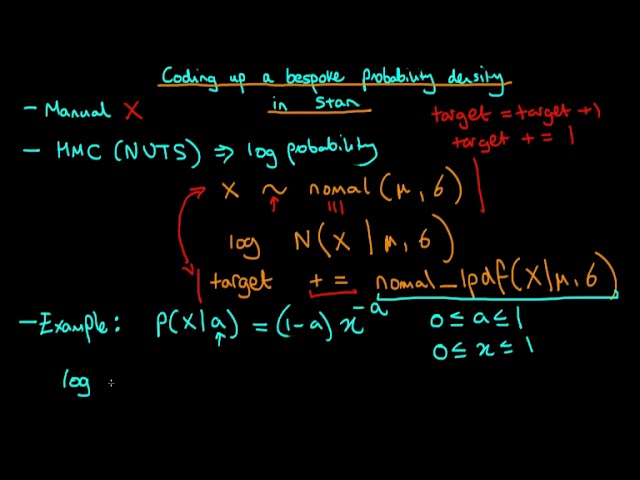 Coding up a bespoke probability density
in Stan
- Manual X
target = target + 1
target += 1
- HMC (NUTS) ⇒ log probability
X ~ normal (μ, σ)
log N(X | μ, σ)
target += normal_lpdf(X|μ, σ)
- Example: P(X|a) = (1-a) x^-a
0 ≤ a ≤ 1
0 ≤ x ≤ 1
log